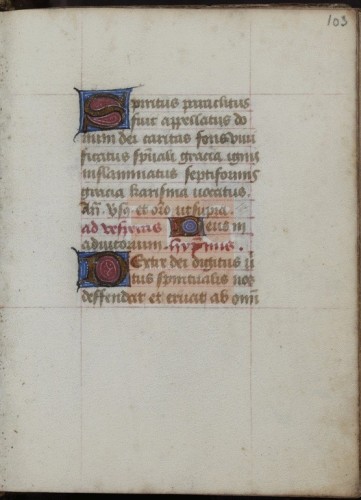 103
Spiritus paraclitus
fuit appellatus do
num dei caritas fons vivi
ficatus spũalis gracia ignis
inflammatus septiformis
gracia karisma vocatus.
Añ. Vs̃. et orõ ut supra.
ad vesperas Deus in
adiutorium hympnus.
Dextre dei digitus v
tus spiritualis nos
deffendat et eruat ab omñ